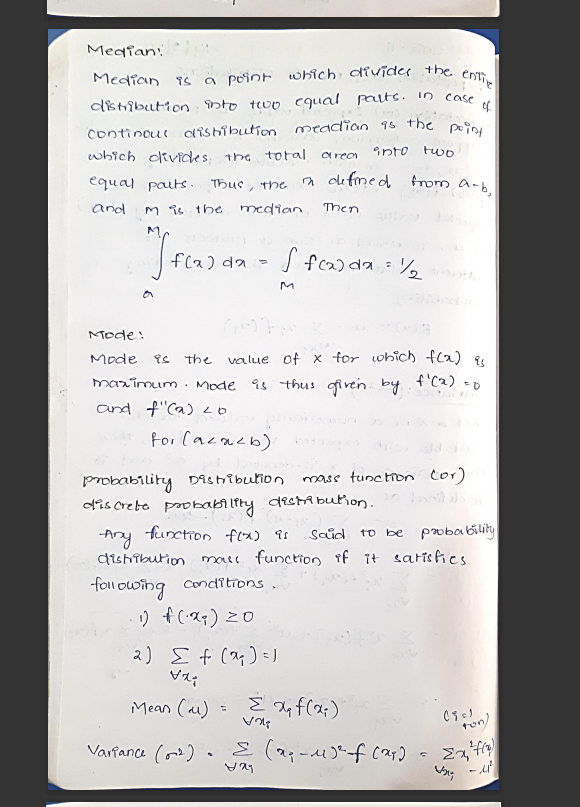 Median:
Median is a point which divides the entire
distribution into two equal parts. in case of
continous distribution meadian is the point
which divides the total area into two
equal parts. Thus, the x defined from a-b,
and M is the median Then
∫ₐᴹ f(x) dx = ∫_M f(x) dx = 1/2
Mode:
Mode is the value of x for which f(x) is
maximum. Mode is thus given by f'(x) =0
and f''(x) <0
for (a<x<b)
probability Distribution mass function (or)
discrete probability distribution.
Any function f(x) is said to be probability
distribution mass function if it satisfies
following conditions.
1) f(xᵢ) ≥0
2) Σ f (xᵢ) =1
∀xᵢ
Mean (μ) = Σ xᵢ f(xᵢ)
∀xᵢ
(i=1 to n)
Variance (σ²) = Σ (xᵢ -μ)² f (xᵢ) = Σ xᵢ² f(xᵢ) - μ²
∀xᵢ ∀xᵢ